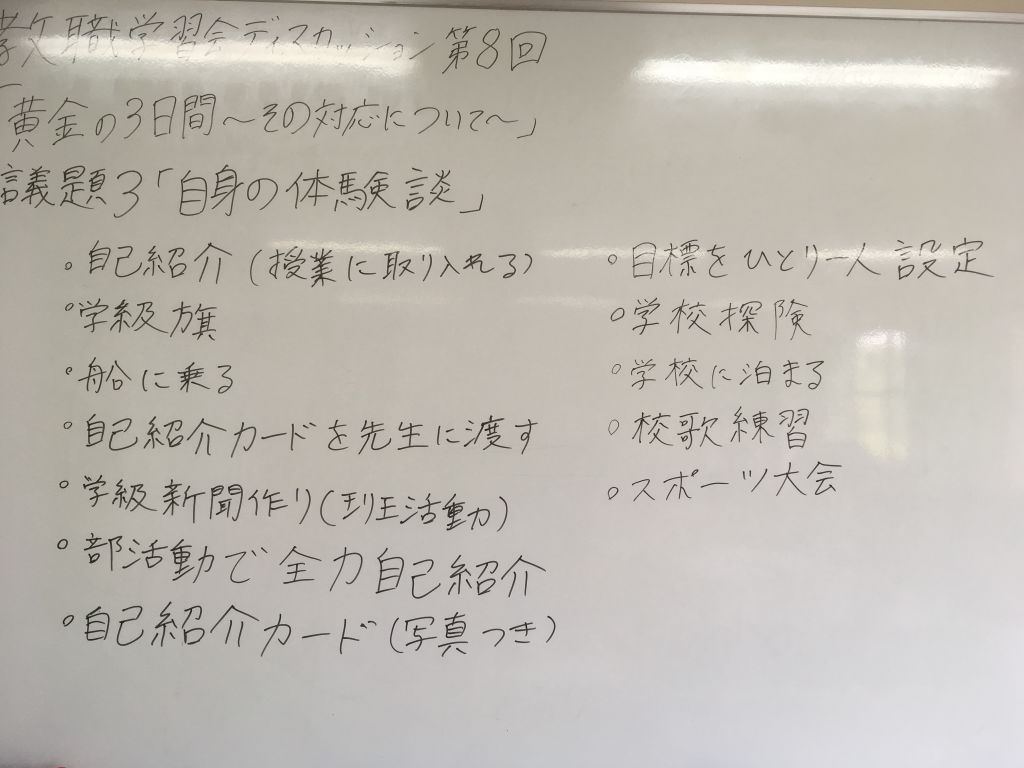 教職学習会ディスカッション 第8回
「黄金の3日間～その対応について～」
議題3「自身の体験談」
。自己紹介(授業に取り入れる)
。学級旗
。船に乗る
。自己紹介カードを先生に渡す
。学級新聞作り(班活動)
。部活動で全力自己紹介
。自己紹介カード(写真つき)
。目標をひとり一人設定
。学校探険
。学校に泊まる
。校歌練習
。スポーツ大会